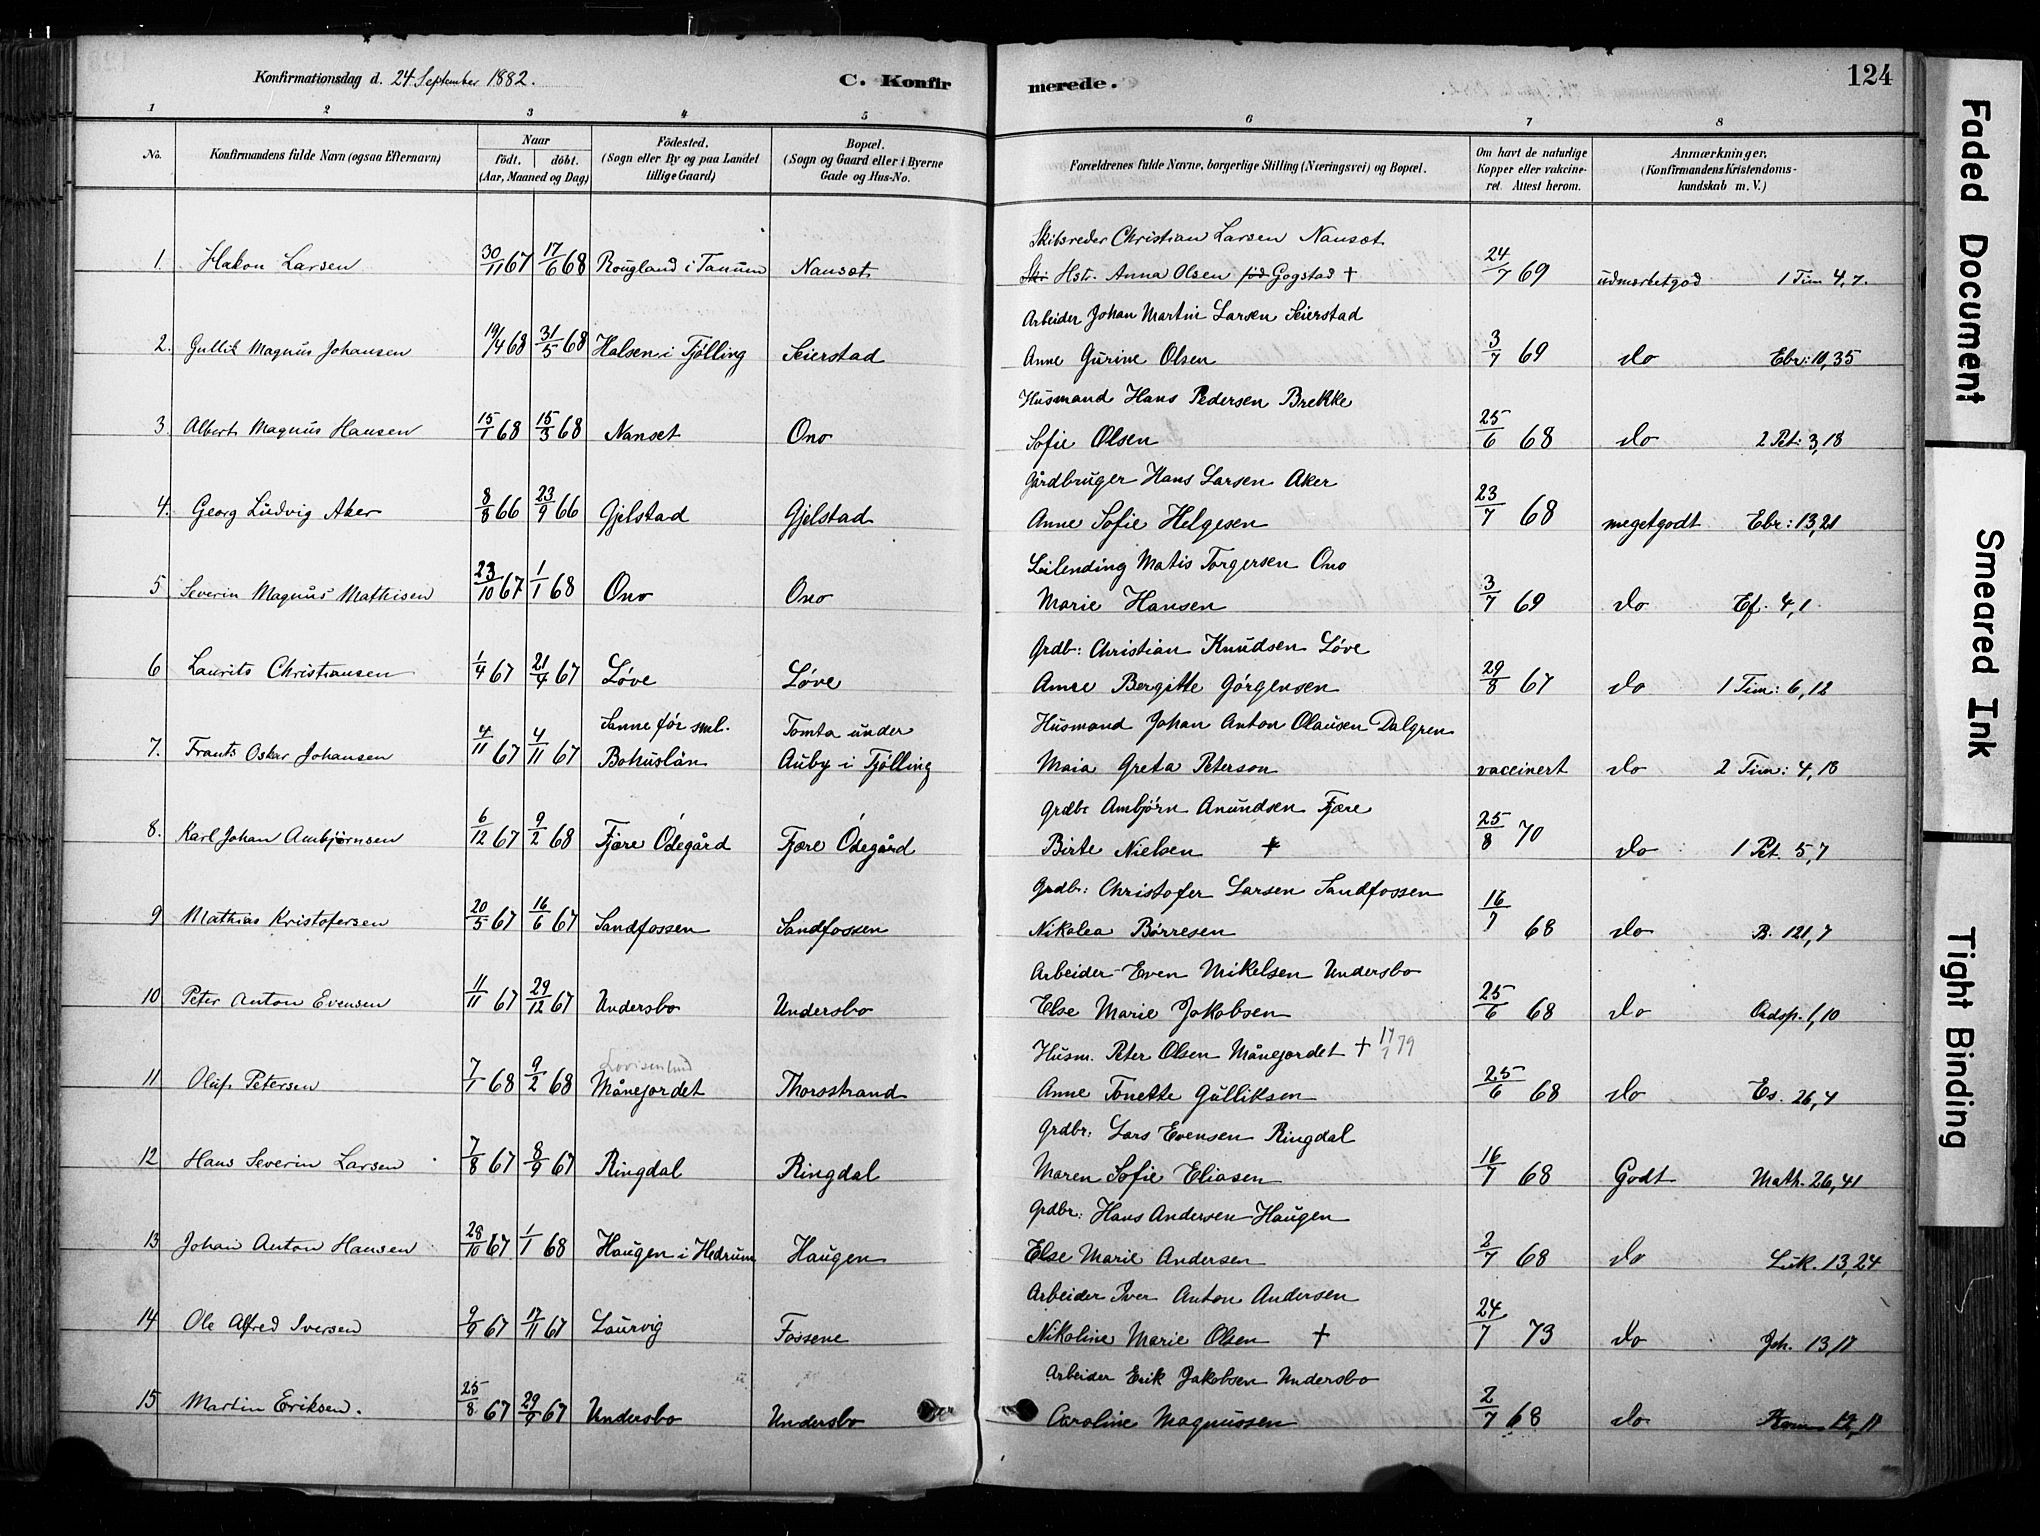 Konfirmationsdag d. 24 September 1882.
C. Konfir
merede.
124
1 2 3 4 5 6 7 8
No.
Konfirmandens fulde Navn (ogsaa Efternavn)
Naar
født. | døbt.
(Aar, Maaned og Dag)
Fødested.
(Sogn eller By og paa Landet
tillige Gaard)
Bopæl.
(Sogn og Gaard eller i Byerne
Gade og Hus-No.
Forældrenes fulde Navne, borgerlige Stilling (Næringsvei) og Bopæl.
Om havt de naturlige
Kopper eller vakcine-
ret Attest herom.
Anmærkninger,
(Konfirmandens Kristendoms-
kundskab m. V.)
Skibsreder Christian Larsen Nanset
1. Hakon Larsen 30/11 67 17/6 68 Rougland i Tanum Nanset Hstr. Anna Olsen født Gogstad † 24/7 69 udmærketgod 1 Tim 4,7.
Arbeider Johan Martin Larsen Seierstad
2. Gullik Magnus Johansen 19/4 68 31/5 68 Halsen i Tjølling Seierstad Anne Gurine Olsen 3/7 69 do Ebr: 10,35
Husmand Hans Pedersen Brekke
3. Albert Magnus Hansen 15/1 68 15/3 68 Nanset Ono Sofie Olsen 25/6 68 do 2 Pet: 3,18
Gårdbruger Hans Larsen Aker
4. Georg Ludvig Aker 8/8 66 23/9 66 Gjelstad Gjelstad Anne Sofie Helgesen 23/7 68 megetgodt Ebr: 13,21
Leilending Matis Torgersen Ono
5 Severin Magnus Mathisen 23/10 67 1/1 68 Ono Ono Marie Hansen 3/7 69 do Ef. 4,1
Grdb: Christian Knudsen Løve
6 Laurits Christiansen 1/4 67 21/4 67 Løve Løve Anne Bergitte Jørgensen 29/8 67 do 1 Tim: 6,12
Sanne før sml. Tomta under Husmand Johan Anton Olausen Dalgren
7. Frants Oskar Johansen 4/11 67 4/11 67 Bohuslän Auby i Tjølling Maia Greta Peterson vaccinert do 2 Tim: 4,18
Grdbr Ambjørn Anundsen Fjære
8. Karl Johan Ambjørnsen 6/12 67 9/2 68 Fjære Ødegård Fjære Ødegård Birte Nielsen † 25/8 70 do 1 Pet. 5,7
Grdbr: Christofer Larsen Sandfossen
9 Mathias Kristofersen 20/5 67 16/6 67 Sandfossen Sandfossen Nikolea Børresen 16/7 68 do P. 121,7
Arbeider Even Mikelsen Undersbo
10 Peter Anton Evensen 11/11 67 29/12 67 Undersbo Undersbo Else Marie Jakobsen 25/6 68 do Ordsp. 1,10
Lovisenlund Husm. Peter Olsen Månejordet † 17/7 79
11 Oluf Petersen 7/1 68 9/2 68 Månejordet Thorsstrand Anne Tonette Gulliksen 25/6 68 do Es. 26,4
Grdbr: Lars Evensen Ringdal
12 Hans Severin Larsen 7/8 67 8/9 67 Ringdal Ringdal Maren Sofie Eliasen 16/7 68 Godt Math. 26,41
Grdbr: Hans Andersen Haugen
13 Johan Anton Hansen 28/10 67 1/1 68 Haugen i Hedrum Haugen Else Marie Andersen 2/7 68 do Luk. 13,24
Arbeider Iver Anton Andersen
14 Ole Alfred Iversen 9/9 67 17/11 67 Laurvig Fossene Nikoline Marie Olsen † 24/7 73 do Joh. 13,17
Arbeider Erik Jakobsen Undersbo
15 Martin Eriksen. 25/8 67 29/9 67 Undersbo Undersbo Caroline Magnussen 2/7 68 do Rom 12,11
Faded Document
Smeared Ink
Tight Binding